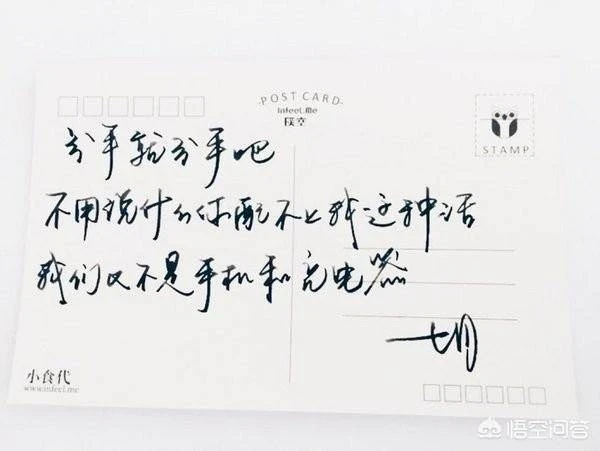 POST CARD
Infeel.Me
璞空
STAMP
分手就分手吧
不用说什么你配不上我这种话
我们又不是手机和充电器
七月
小食代
www.infeel.me
悟空问答